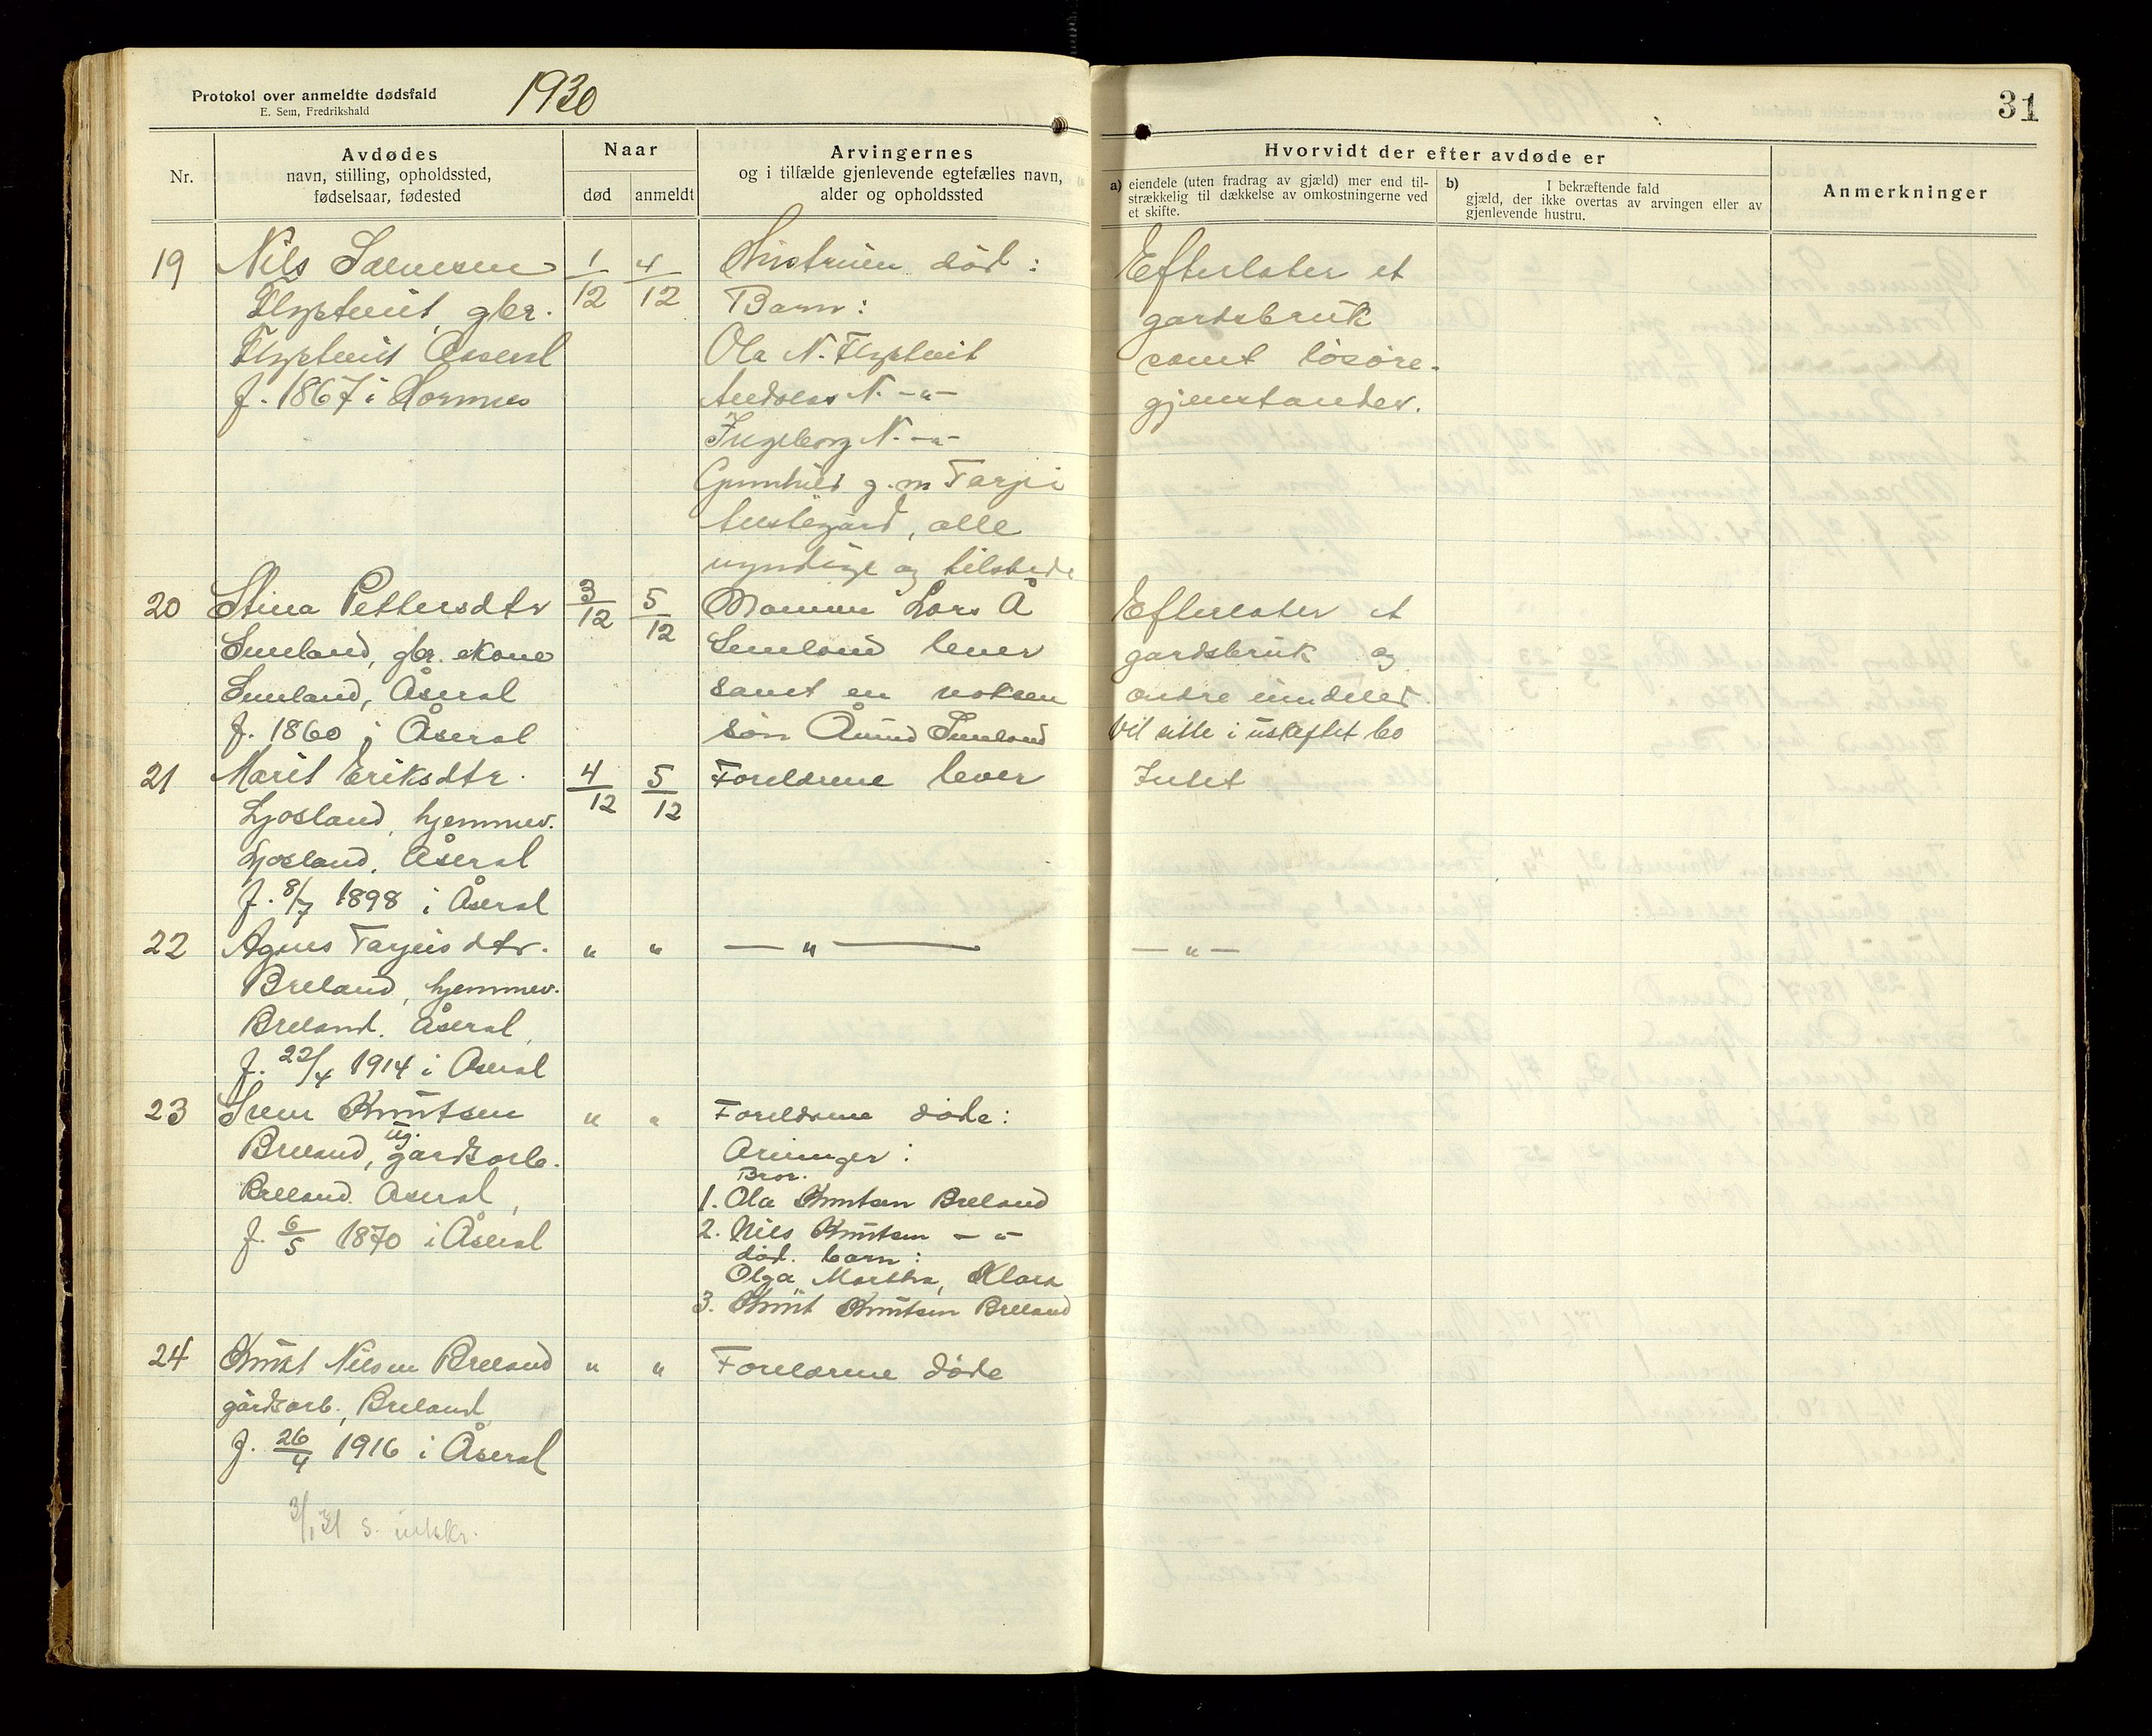 Protokol over anmeldte dødsfald
E. Sem, Fredrikshald
1930
31
Nr.
Avdødes
navn, stilling, opholdssted,
fødselsaar, fødested
Naar
død
anmeldt
Arvingernes
og i tilfælde gjenlevende egtefælles navn,
alder og opholdssted
Hvorvidt der efter avdøde er
a) eiendele (uten fradrag av gjæld) mer end til-
strækkelig til dækkelse av omkostningerne ved
et skifte.
b) I bekræftende fald
gjæld, der ikke overtas av arvingen eller av
gjenlevende hustru.
Anmerkninger
19
Nils
gbr.
Åseral
f. 1867 i Hornnes
1/12
4/12
Hustruen död:
Barn:
Ola N.
Andreas N. -"-
Ingeborg N. -"-
Gunnhild g. m Tarjei
Austegård, alle
myndige og tilstede
Efterlater et
gardsbruk
samt lösöre-
gjenstander.
20
Stina Pettersdtr
gbr. ekone
Åseral
f. 1860 i Åseral
3/12
5/12
Mannen Lars Å
lever
samt en voksen
sön Åmund
Efterlater et
gardsbruk og
andre eiendeler.
Vil sitte i uskiftet bo
21
Marit Eriksdtr.
Ljosland, hjemmev.
Ljosland, Åseral
f. 8/7 1898 i Åseral
4/12
5/12
Foreldrene lever
Intet
22
Agnes Tarjeisdtr.
Breland, hjemmev.
Breland. Åseral,
f. 22/4 1914 i Åseral
"
"
— " —
— " —
23
Sven Knutsen
Breland, ug. gårdsarb.
Breland. Åseral,
f. 6/5 1870 i Åseral
"
"
Foreldrene döde:
Arvinger:
Bror.
1. Ola Knutsen Breland
2. Nils Knutsen - " -
död. barn:
Olga Martha, Klara
3. Knut Knutsen Breland
24
Knut Nilsen Breland
gårdsarb., Breland
f. 26/4 1916 i Åseral
"
"
Foreldrene döde
3/1 31 s. utskr.